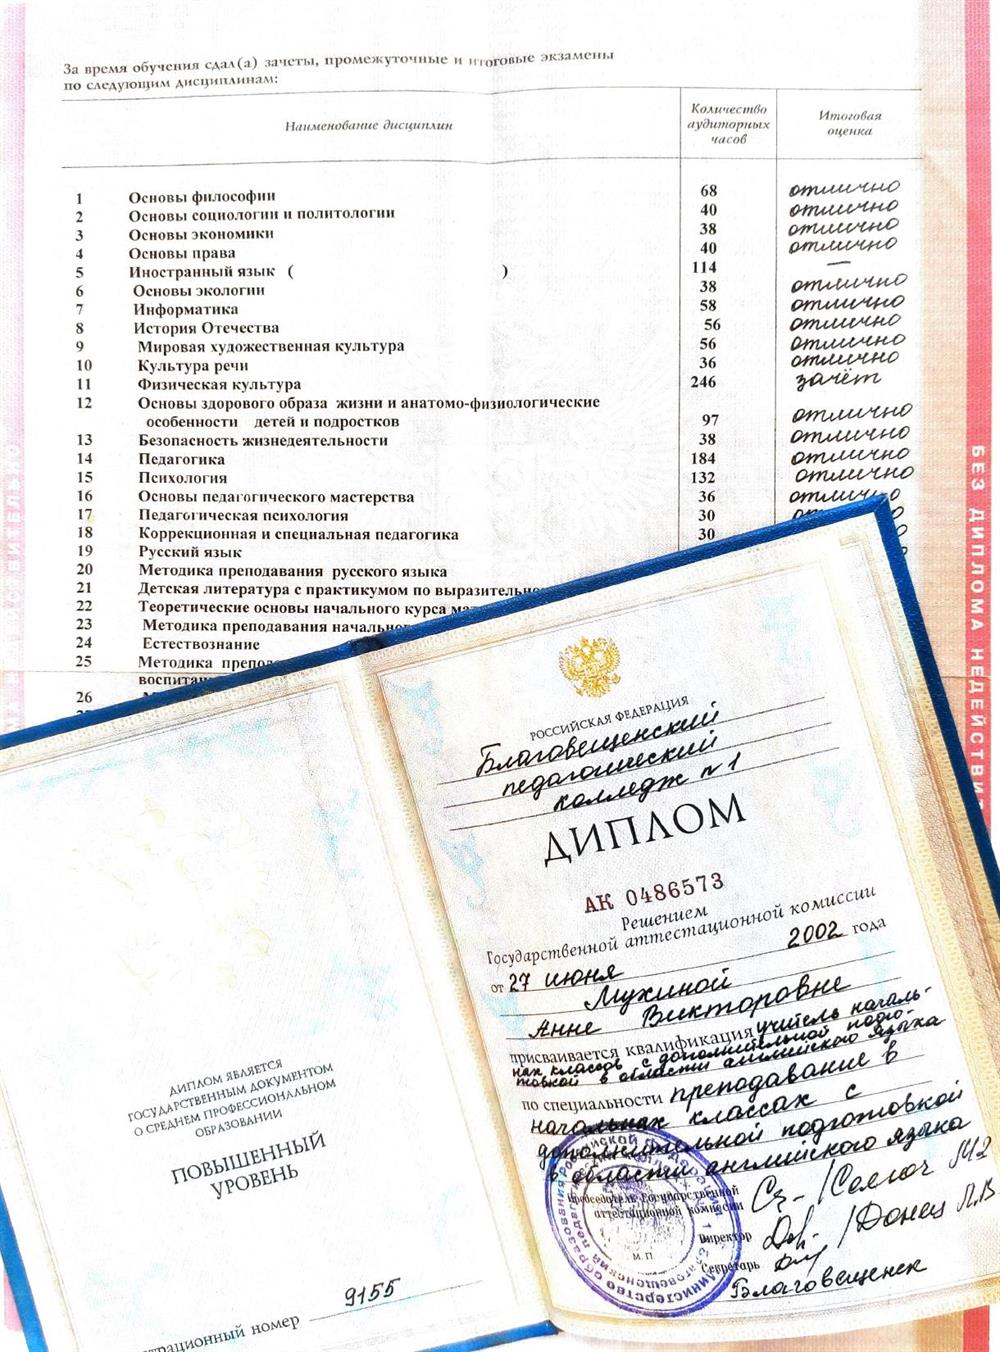 За время обучения сдал(а) зачеты, промежуточные и итоговые экзамены
по следующим дисциплинам:
Наименование дисциплин
Количество аудиторных часов
Итоговая оценка
1 Основы философии 68 отлично
2 Основы социологии и политологии 40 отлично
3 Основы экономики 38 отлично
4 Основы права 40 отлично
5 Иностранный язык ( ) 114 —
6 Основы экологии 38 отлично
7 Информатика 58 отлично
8 История Отечества 56 отлично
9 Мировая художественная культура 56 отлично
10 Культура речи 36 отлично
11 Физическая культура 246 зачёт
12 Основы здорового образа жизни и анатомо-физиологические
особенности детей и подростков 97 отлично
13 Безопасность жизнедеятельности 38 отлично
14 Педагогика 184 отлично
15 Психология 132 отлично
16 Основы педагогического мастерства 36 отлично
17 Педагогическая психология 30
18 Коррекционная и специальная педагогика 30
19 Русский язык
20 Методика преподавания русского языка
21 Детская литература с практикумом по выразительно
22 Теоретические основы начального курса мат
23 Методика преподавания начального
24 Естествознание
25 Методика препод
воспитан
26
БЕЗ ДИПЛОМА НЕДЕЙСТВИТ
РОССИЙСКАЯ ФЕДЕРАЦИЯ
Благовещенский
педагогический
колледж №1
ДИПЛОМ
АК 0486573
Решением
Государственной аттестационной комиссии
от 27 июня 2002 года
Мухиной
Анне Викторовне
присваивается квалификация учитель началь-
ных классов с дополнительной подго-
товкой в области английского языка
по специальности преподавание в
начальных классах с
дополнительной подготовкой
в области английского языка
Председатель Государственной
аттестационной комиссии
Директор /Донец Л.В
Секретарь
Благовещенск
М.П.
ДИПЛОМ ЯВЛЯЕТСЯ
ГОСУДАРСТВЕННЫМ ДОКУМЕНТОМ
О СРЕДНЕМ ПРОФЕССИОНАЛЬНОМ
ОБРАЗОВАНИИ
ПОВЫШЕННЫЙ
УРОВЕНЬ
страционный номер 9155